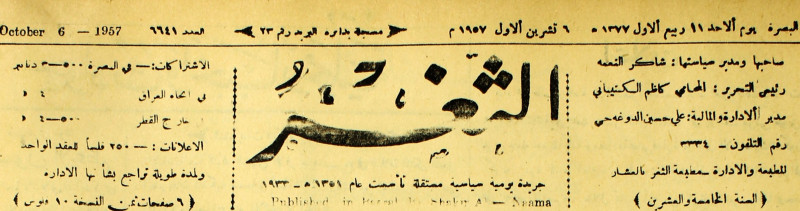 البصرة يوم الاحد ١١ ربيع الاول ١٣٧٧ ه ٦ تشرين الاول ١٩٥٧ م مسجلة بدائرة البريد رقم ٢٣ العدد ٦٦٤١ October 6 — 1957
صاحبها ومدير سياستها : شاكر النعمه
رئيس التحرير : المحامي كاظم الكشيباني
مدير الادارة والمالية : علي حسين الدوغه جي
رقم التلفون - ٣٣٣٤
للطبعة والادارة — مطبعة الثغر بالعشار
( السنة الخامسة والعشرين )
الثغر
جريدة يومية سياسية مستقلة تأسست عام ١٣٥١ ه — ١٩٣٣
Published in Shaker Naama
الاشتراكات : — في البصرة ٥٠٠—٣ دنانير
في انحاء العراق ٤ د
خارج القطر ٥٠٠—٤ د
الاعلانات : — ٢٥٠ فلساً للعقد الواحد
ولمدة طويلة تراجع بشأنها الاداره
( ٦ صفحات ثمن النسخة ١٠ فلوس )